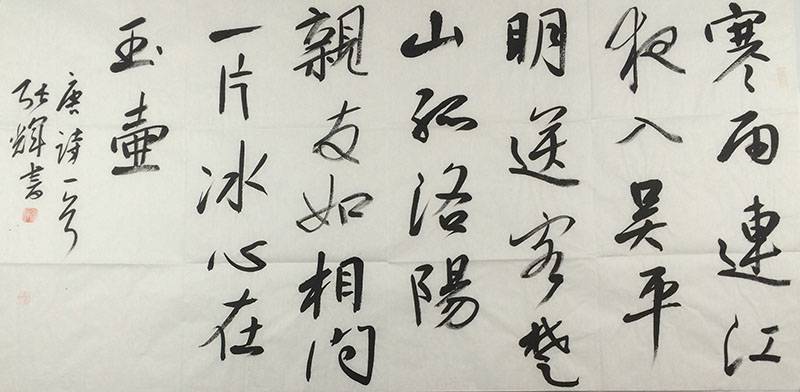 寒雨連江
夜入吴平
明送客楚
山孤洛陽
親友如相问
一片冰心在
玉壶
唐诗一首
耿辉書